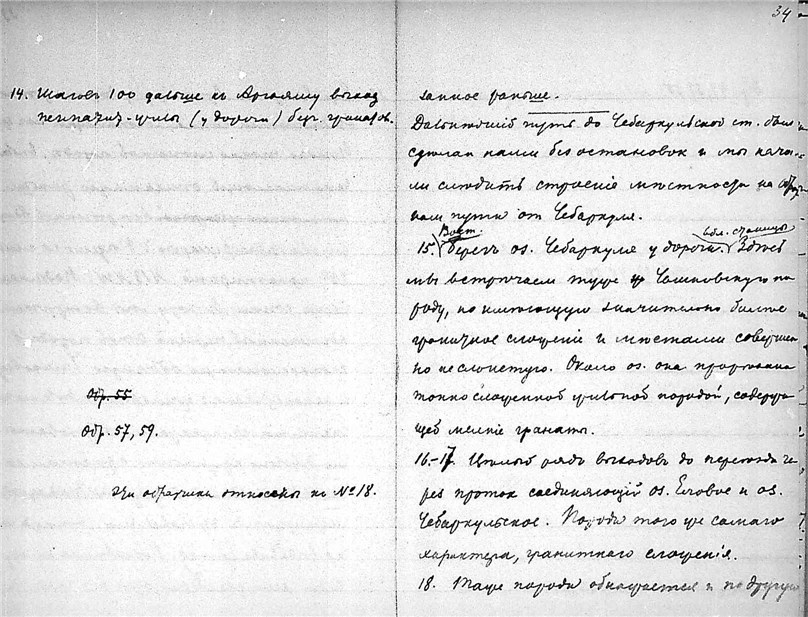 14. Шаговъ 100 дальше къ Аргаяшу выход
пегматит. жилы (у дороги) бер. гранатов.
Обр. 55
Обр. 57, 59.
Эти образчики относены къ № 18.
34
занное раньше.
Дальнѣйшій путь до Чебаркульской ст. был
сдѣлан нами без остановок и мы нача-
ли слѣдить строеніе мѣстности на обрат-
ном пути от Чебаркуля.
Вост. вбл. станицы
15. Берегъ оз. Чебаркуля у дороги. Здѣсь
мы встрѣчаем туже Чашковскую по
роду, но имѣющую значительно болѣе
гранитное сложеніе и мѣстами совершен
но неслоистую. Около оз. она прорѣзана
тонко сложенной жильной породой, содержа
щей мелкіе гранаты.
16-17. Цѣлый рядъ выходовъ до перехода че-
рез проток соединяющій оз. Еловое и оз.
Чебаркульское. Порода того же самаго
характера, гранитнаго сложенія.
18. Таже порода обнажается и по другую